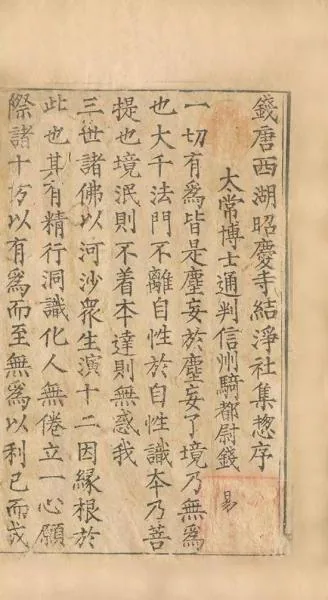 錢唐西湖昭慶寺結淨社集緫序
太常博士通判信州騎都尉錢易
一切有為皆是塵妄於塵妄了境乃無為
也大千法門不離自性於自性識本乃菩
提也境泯則不着本達則無惑我
三世諸佛以河沙衆生演十二因縁根於
此也其有精行洞識化人無倦立一心願
際諸十方以有為而至無為以利己而成